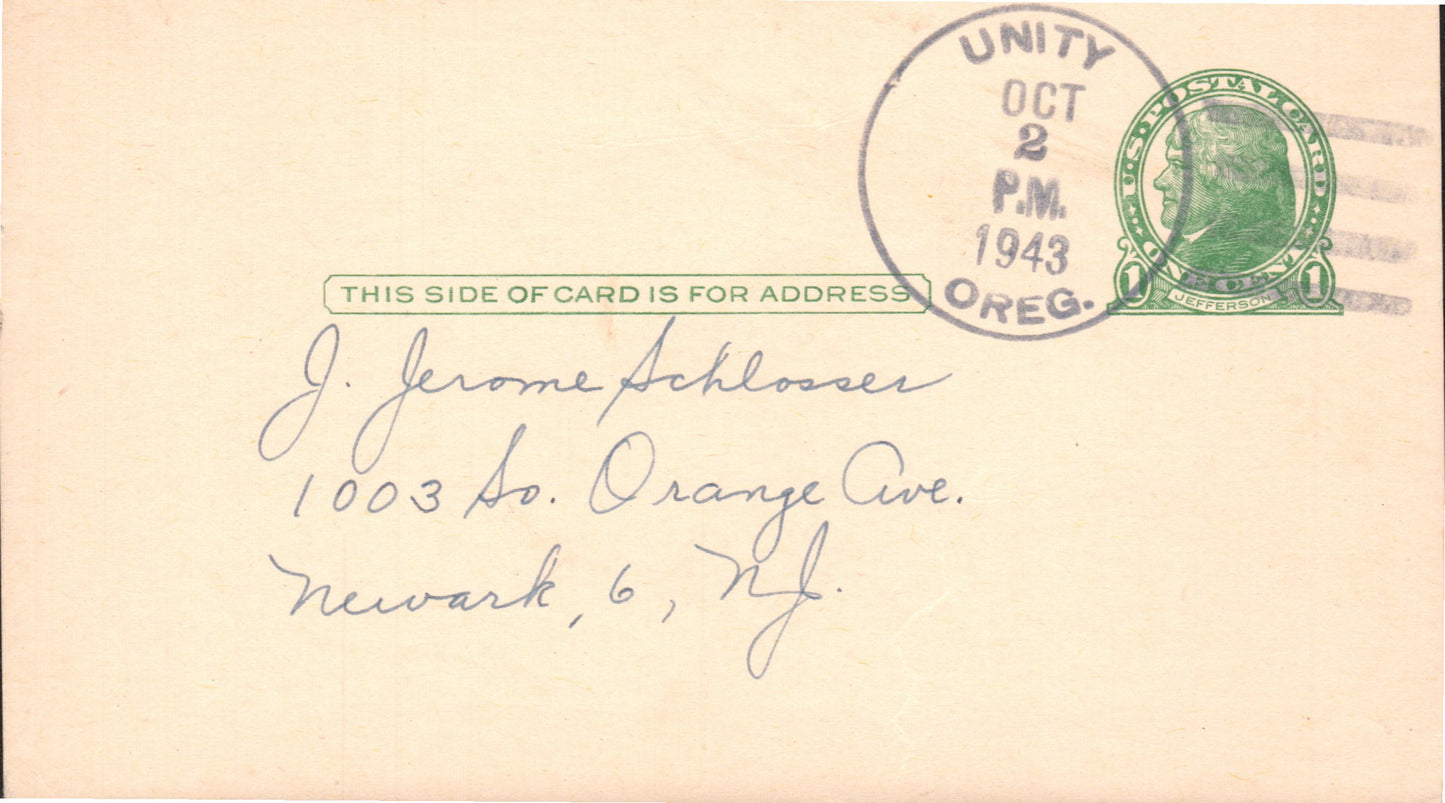 UNITY
OCT
2
P.M.
1943
OREG.
U.S. POSTAL CARD
ONE CENT
1 JEFFERSON 1
THIS SIDE OF CARD IS FOR ADDRESS
J. Jerome Schlosser
1003 So. Orange Ave.
Newark, 6, N.J.